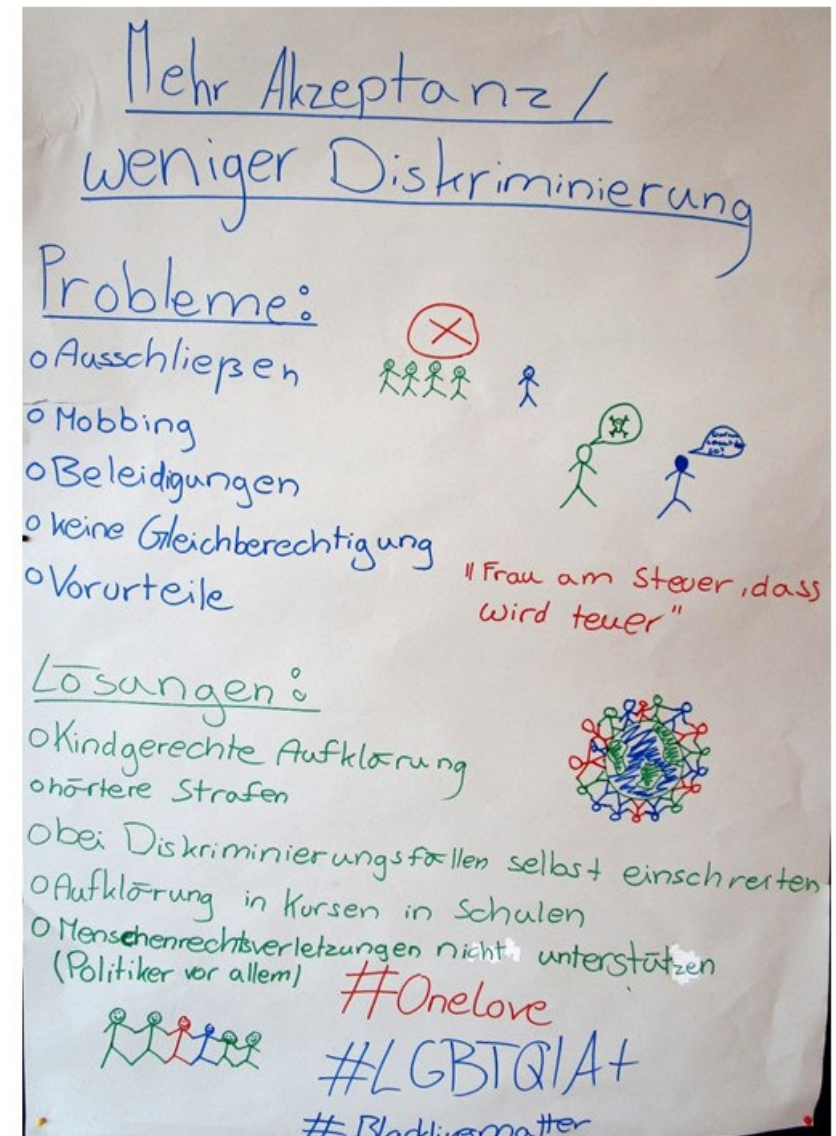 Mehr Akzeptanz /
weniger Diskriminierung
Probleme:
o Ausschließen
o Mobbing
o Beleidigungen
o keine Gleichberechtigung
o Vorurteile
"Frau am Steuer, dass
wird teuer"
Lösungen:
o Kindgerechte Aufklärung
o härtere Strafen
o bei Diskriminierungsfällen selbst einschreiten
o Aufklärung in Kursen in Schulen
o Menschenrechtsverletzungen nicht unterstützen
(Politiker vor allem)
#Onelove
#LGBTQIA+
#Blacklivesmatter